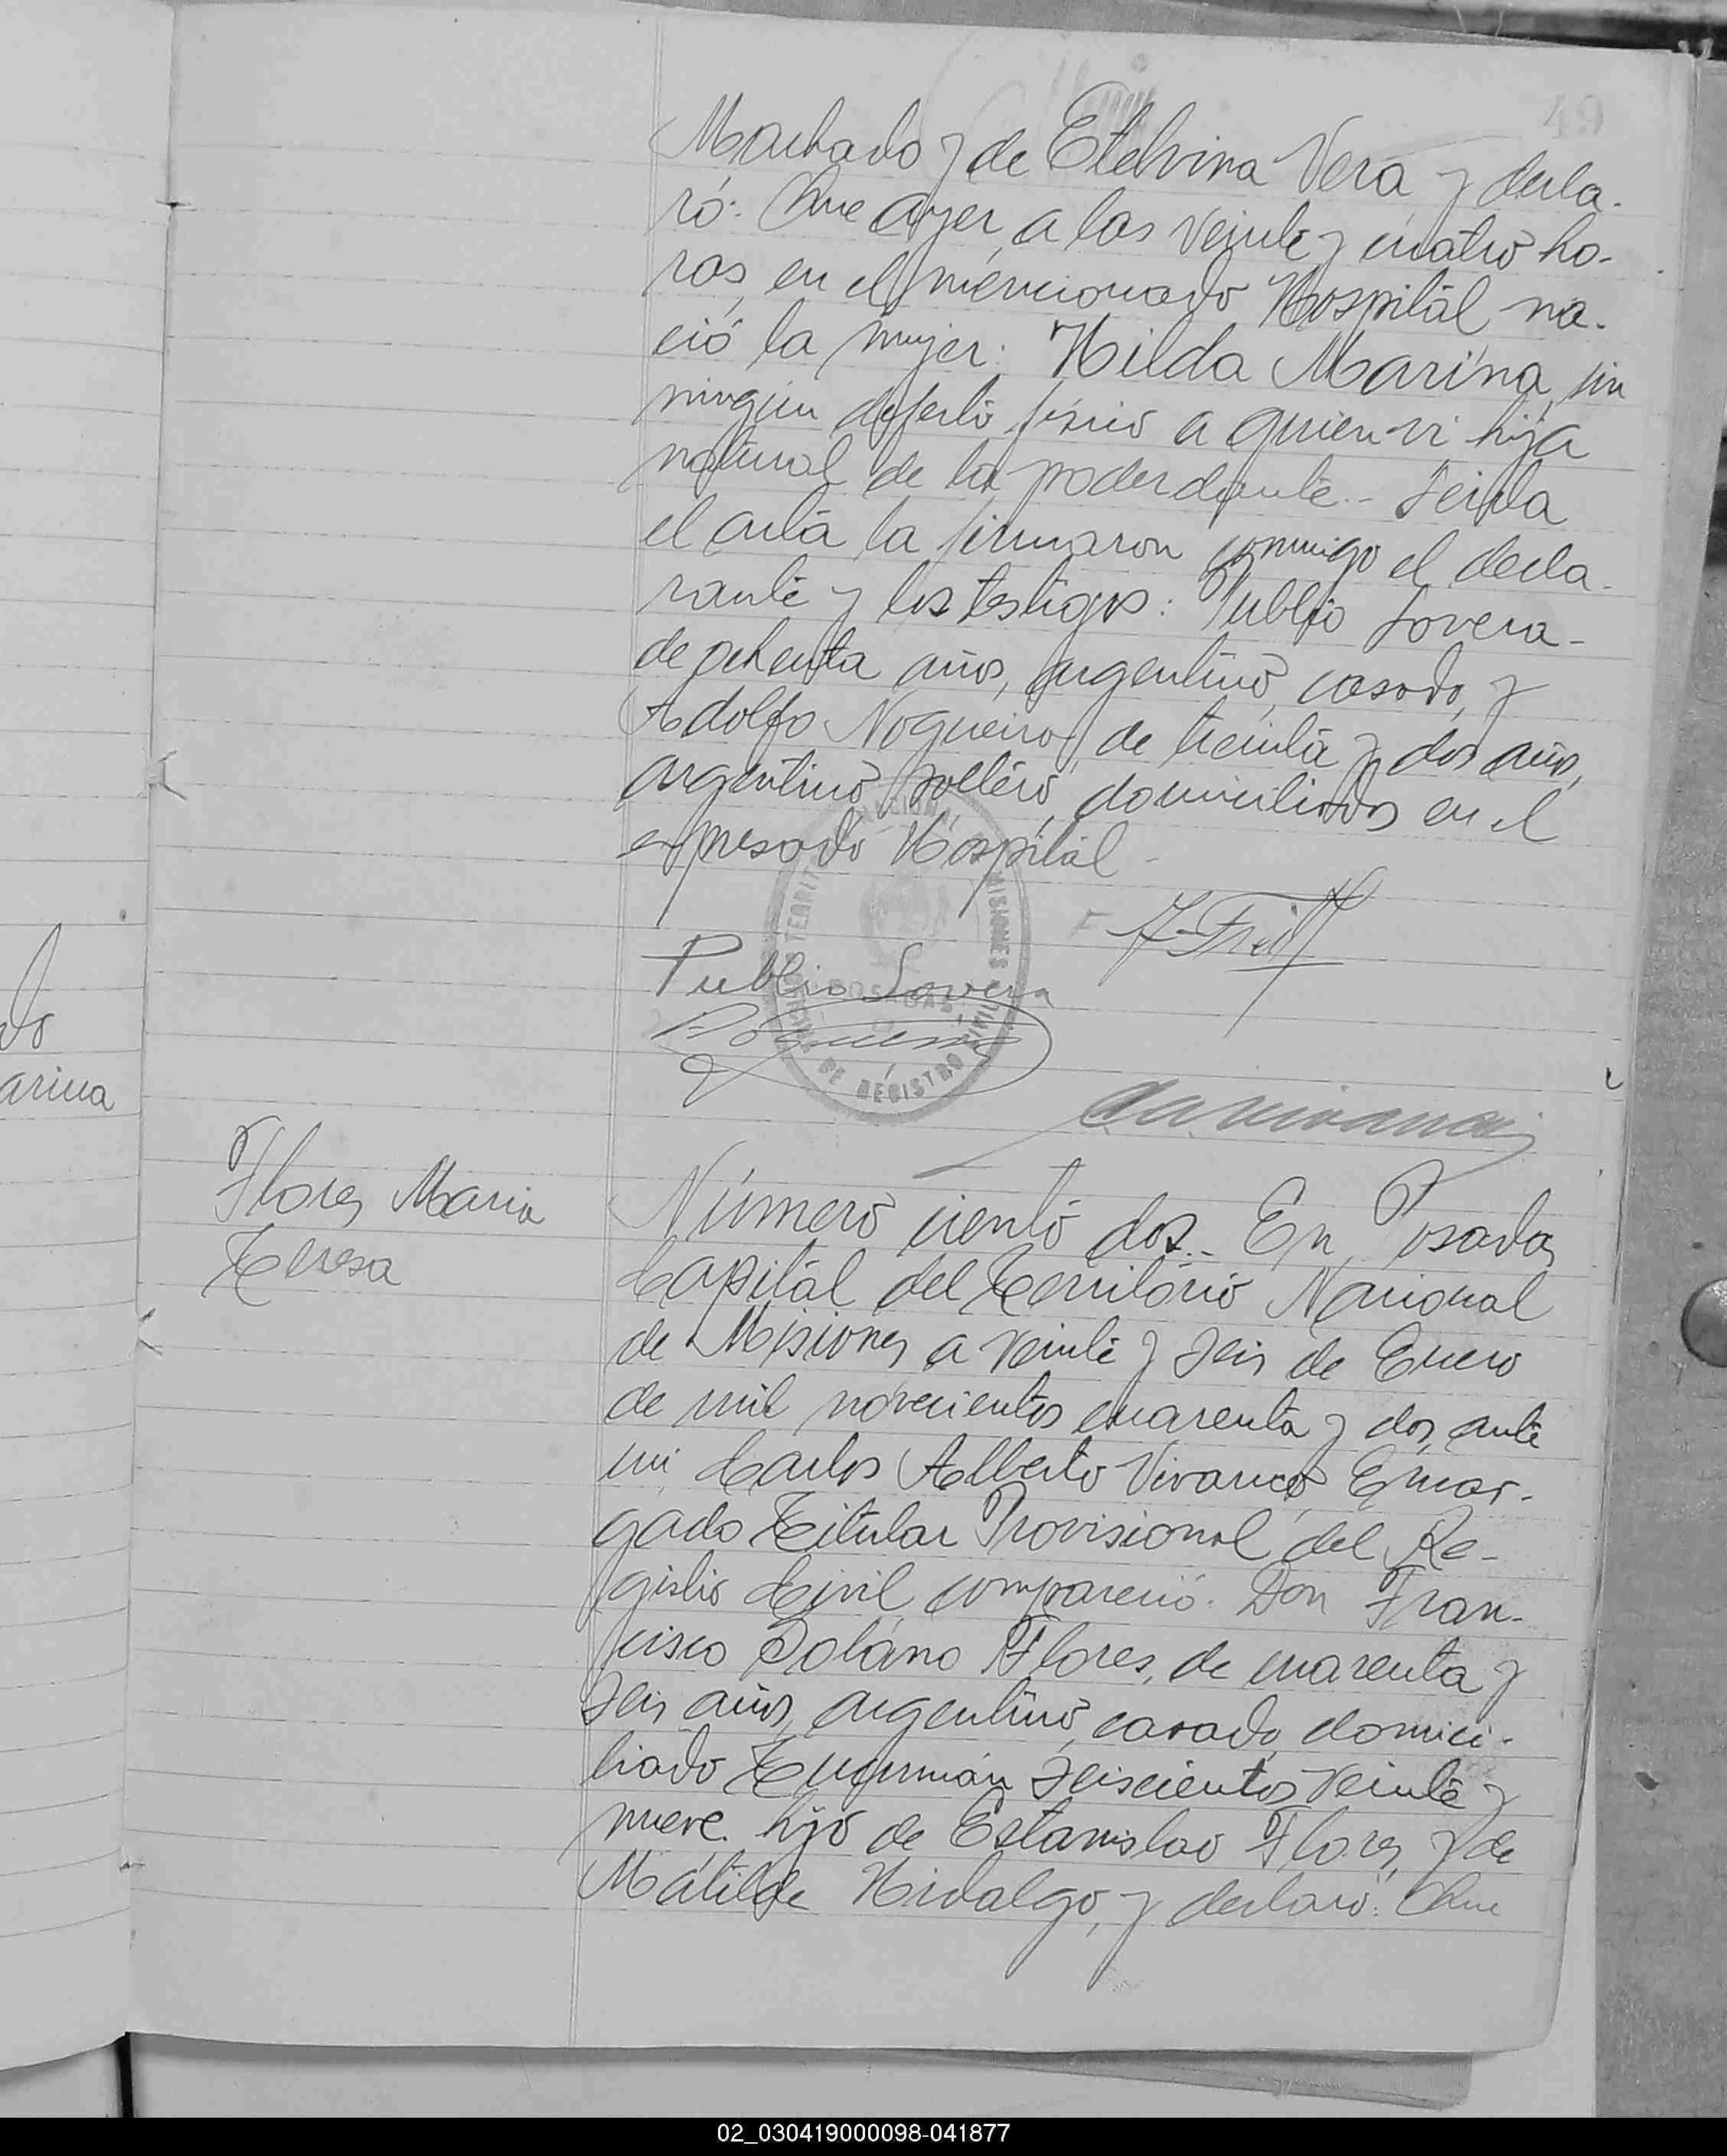 49
Machado y de Etelvina Vera, y decla-
ró: Que ayer, a las veinte y cuatro ho-
ras, en el mencionado Hospital na-
ció la mujer: Hilda Marina, sin
ningún defecto físico a quien vi hija
natural de la poderdante.- Leida
el acta la firmaron conmigo el decla-
rante y los testigos: Publio Lovera-
de ochenta años, argentino, casado, y
Adolfo Nogueira, de treinta y dos años,
argentino, soltero, domiciliados en el
expresado Hospital
Publio Lovera
TERRITORIO NACIONAL DE MISIONES
POSADAS
OFICINA DE REGISTRO CIVIL
do
arina
Flores Maria
Teresa
Número ciento dos.- En Posadas,
Capital del Territorio Nacional
de Misiones a veinte y seis de Enero
de mil novecientos cuarenta y dos, ante
mi, Carlos Alberto Vivanco, Encar-
gado Titular Provisional del Re-
gistro Civil compareció: Don Fran-
cisco Solano Flores, de cuarenta y
seis años, argentino, casado, domici-
liado Tucumán seiscientos veinte y
nueve. hijo de Estanislao Flores, y de
Matilde Hidalgo, y declaró: Que
02_030419000098-041877